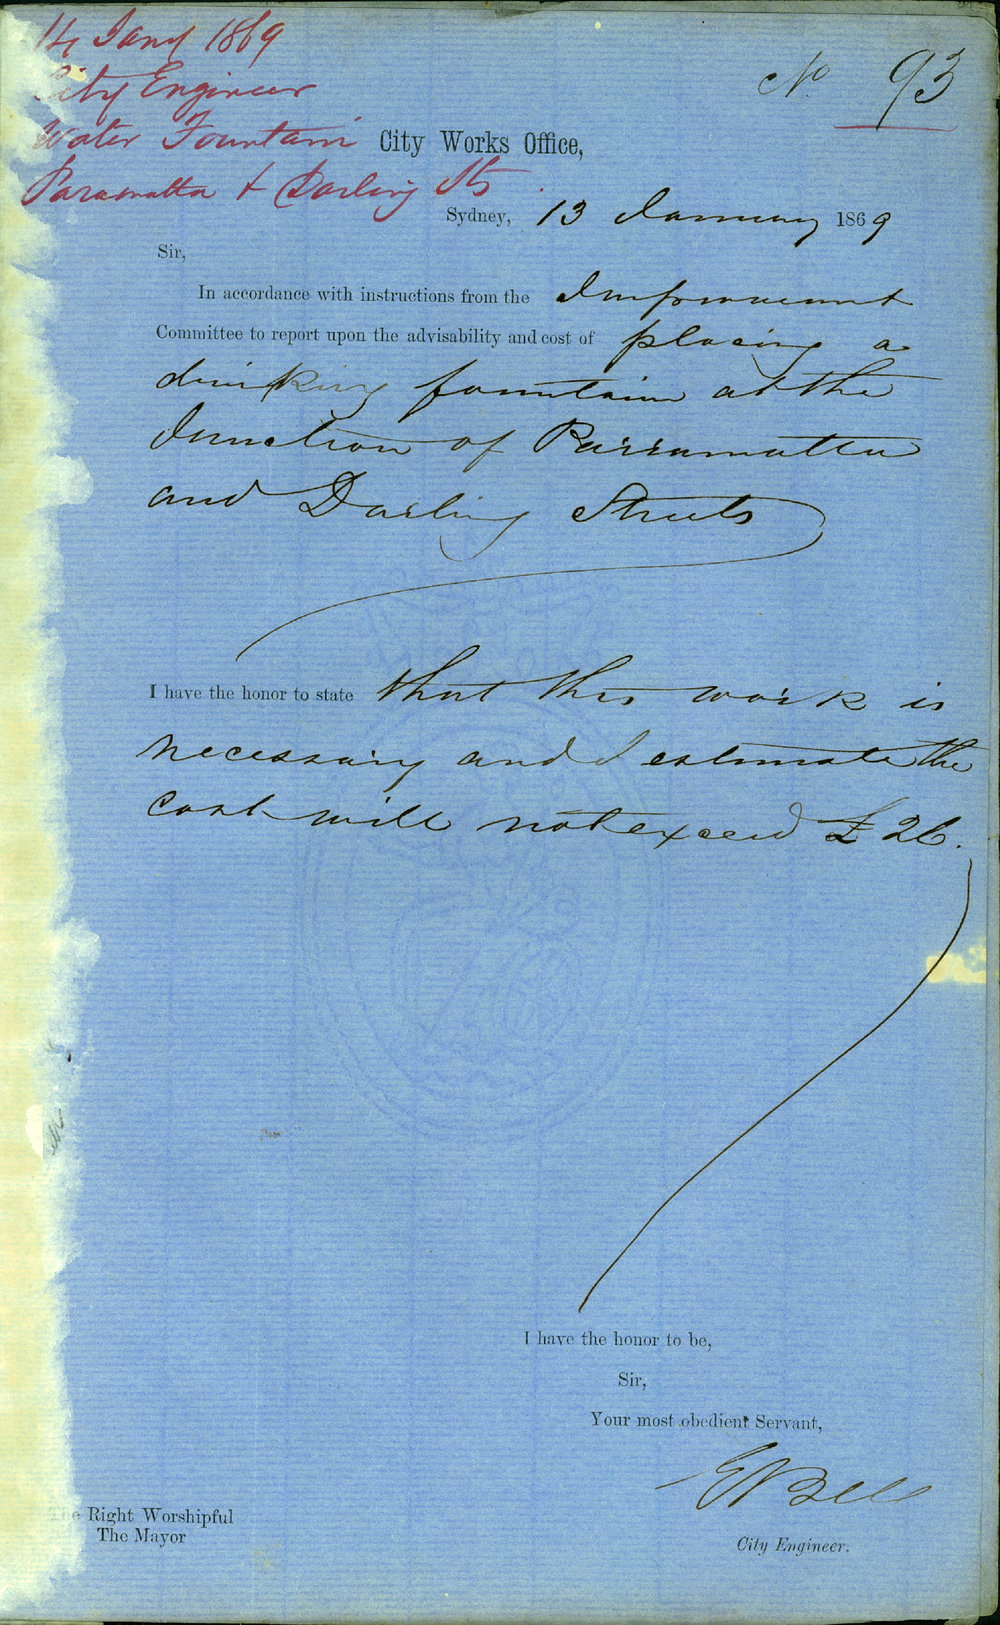 14 Jany 1869
City Engineer
Water Fountain
Paramatta & Darling Sts
No 93
City Works Office,
Sydney, 13 January 1869
Sir,
In accordance with instructions from the Improvement
Committee to report upon the advisability and cost of placing a
drinking fountain at the
Junction of Parramatta
and Darling Streets
I have the honor to state that this work is
necessary and I estimate the
cost will not exceed £26.
I have the honor to be,
Sir,
Your most obedient Servant,
E Bell
City Engineer.
The Right Worshipful
The Mayor